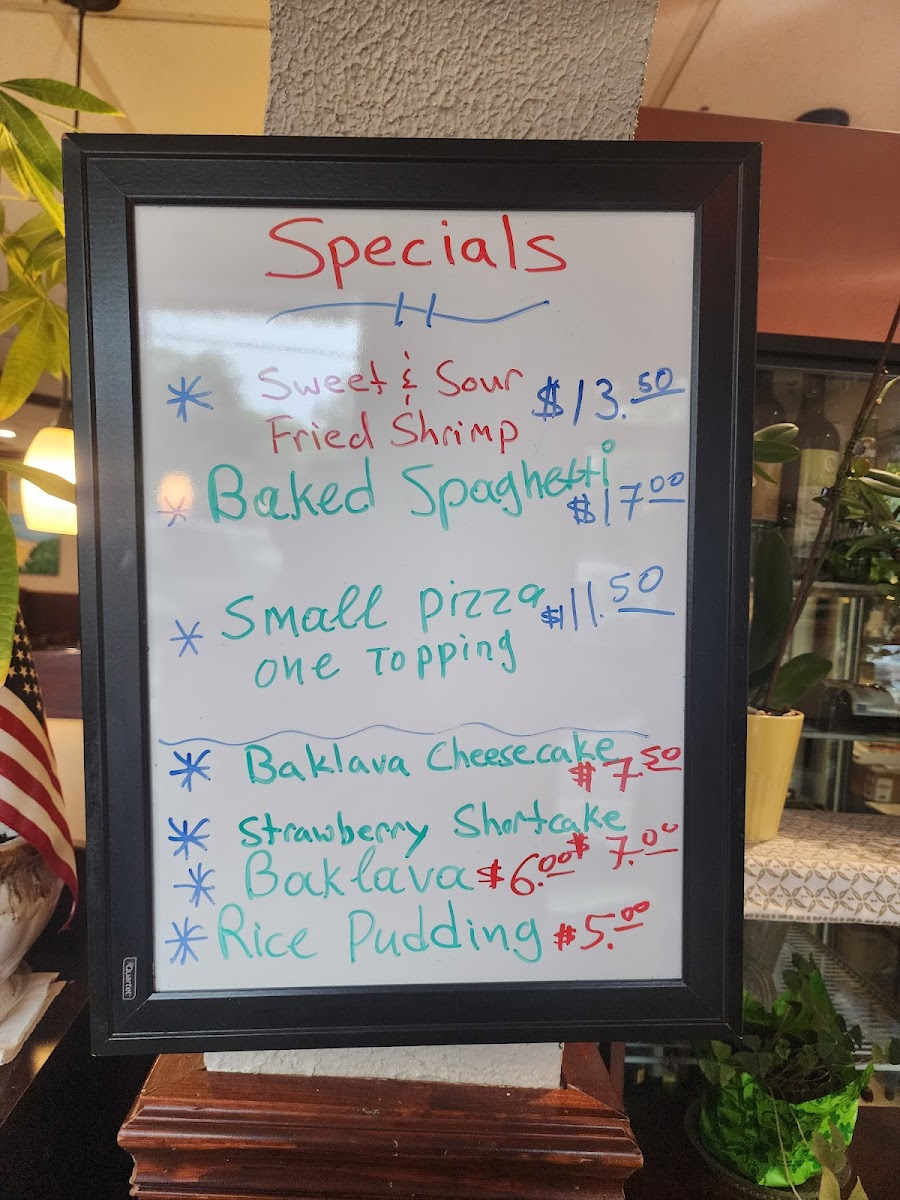 Specials
Sweet & Sour $13.50
Fried Shrimp
Baked Spaghetti
$17.00
Small pizza $11.50
one Topping
Baklava Cheesecake
$7.50
Strawberry Shortcake
$7.00
Baklava $6.00
Rice Pudding $5.00
Quartet